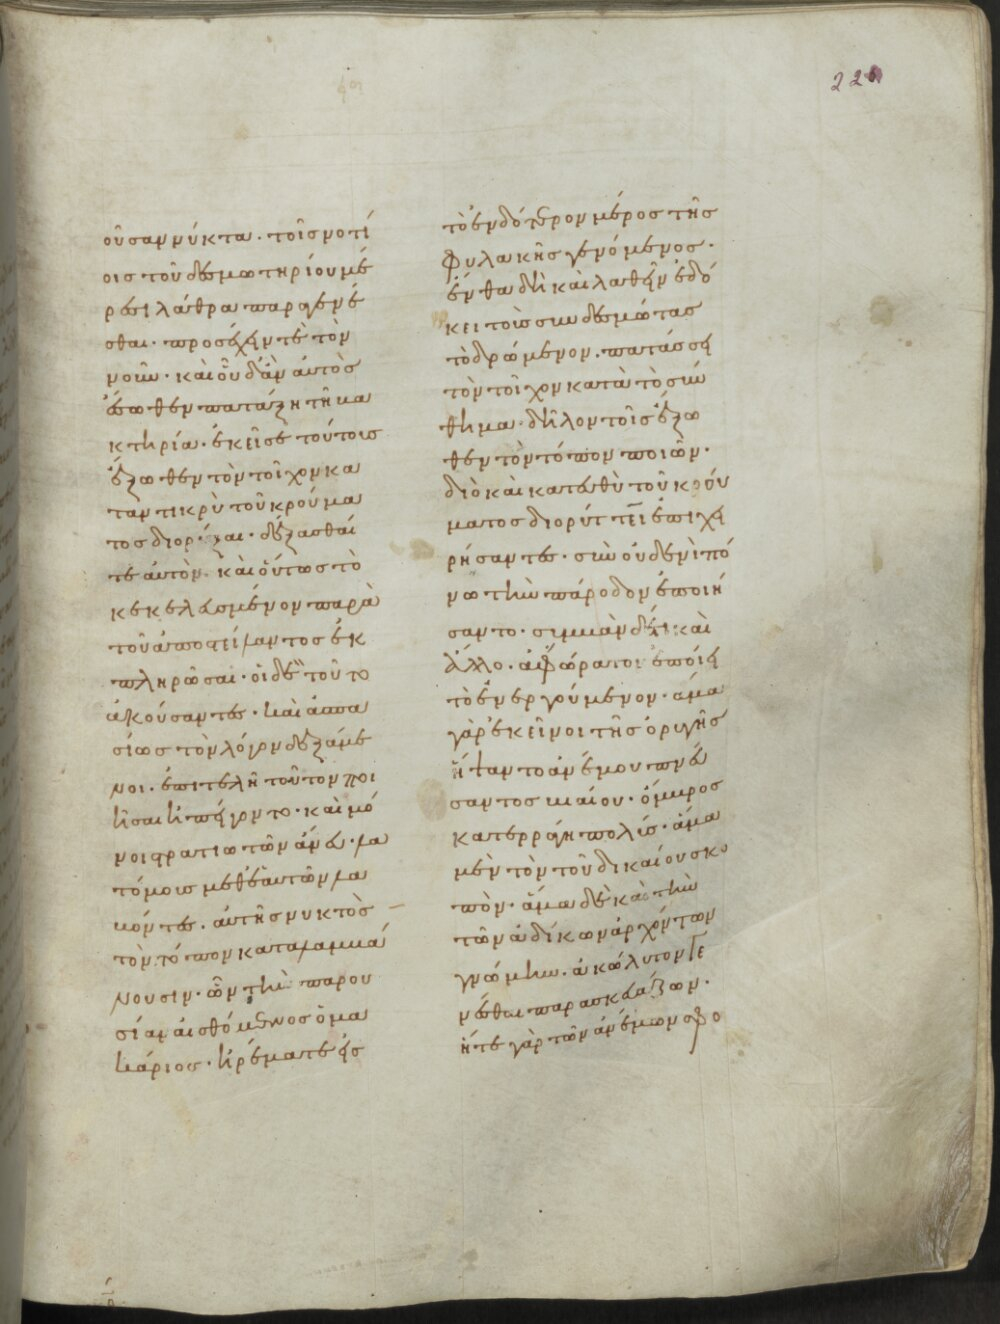 226
οῦσαν νύκτα · τοῖς νοτί
οις τοῦ δεσμωτηρίου μέ
ρεσι λάθρα παραγενέ
σθαι · προσέχειν τὲ τὸν
νοῦν · καὶ οὗ δἂν αὐτὸς
ἔσωθεν πατάξη τῆ βα
κτηρία · ἐκεῖσε τούτοις
ἔξωθεν τὸν τοῖχον κα
ταντικρὺ τοῦ κρούμα
τος διορύξαι · δέξασθαί
τε αὐτὸν · καὶ οὕτως τὸ
κεκελευσμένον παρὰ
τοῦ ἀποστείλαντος ἐκ
πληρῶσαι · οἱ δὲ τοῦτο
ἀκούσαντες · καὶ ἀσπα
σίως τὸν λόγον δεξάμε
νοι · ἐπιτελῆ τοῦτον ποι
ῆσαι ἠπείγοντο · καὶ μό
νοι στρατιωτῶν ἄνευ · λα
τόμοις μεθ' ἑαυτῶν λα
βόντες · αὐτῆς νυκτὸς
τὸν τόπον καταλαμβά
νουσιν · ὧν τὴν παρου
σίαν αἰσθόμενος ὁ μα
κάριος · ἠρέμα τε εἰς
τὸ ἐνδότερον μέρος τῆς
φυλακῆς γενόμενος ·
ἔνθα δὴ καὶ λαθεῖν ἐδό
κει τοὺς συνδεσμώτας
τὸ δρώμενον · πατάσσει
τὸν τοῖχον κατὰ τὸ σύν
θημα · δῆλον τοῖς ἔξω
θεν τὸν τόπον ποιῶν ·
διὸ καὶ κατευθὺ τοῦ κρού
ματος διορύττειν ἐπιχει
ρήσαντες · σὺν οὐδενὶ πό
νω τὴν πάροδον ἐποιή
σαντο · συμβὰν δέ τι καὶ
ἄλλο · ἀφώρατον ἐποίει
τὸ ἐνεργούμενον · ἅμα
γὰρ ἐκεῖνοι τῆς ὀρυγῆς
ἥψαντο ἀνέμου πνεύ
σαντος βιαίου · ὄμβρος
κατερράγη πολύς · ἅμα
μὲν τὸν τοῦ δικαίου σκο
πὸν · ἅμα δὲ καὶ τὴν
τῶν ἀδίκων ἀρχόντων
γνώμην · ἀκώλυτον γε
νέσθαι παρασκευάζων ·
ἥτε γὰρ τῶν ἀνέμων σφο